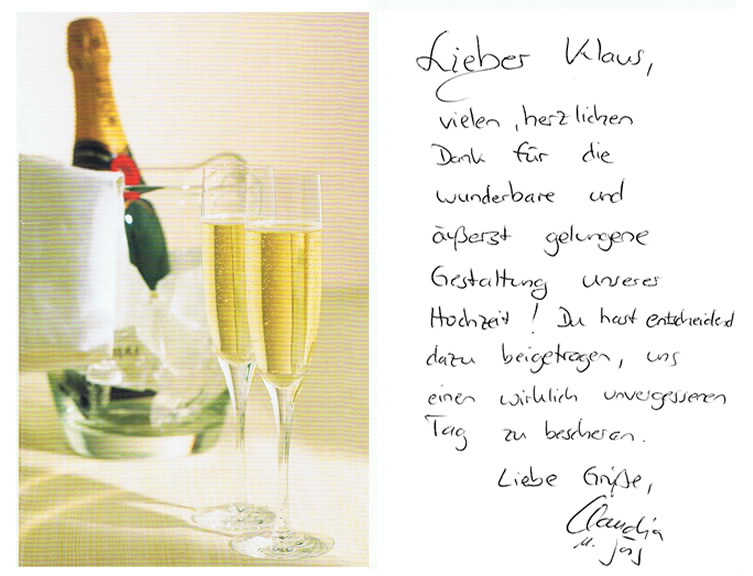 Lieber Klaus,
vielen, herzlichen
Dank für die
wunderbare und
äußerst gelungene
Gestaltung unseres
Hochzeit! Du hast entscheidend
dazu beigetragen, uns
einen wirklich unvergessenen
Tag zu bescheren.
Liebe Grüße,
Claudia
u. Jörg